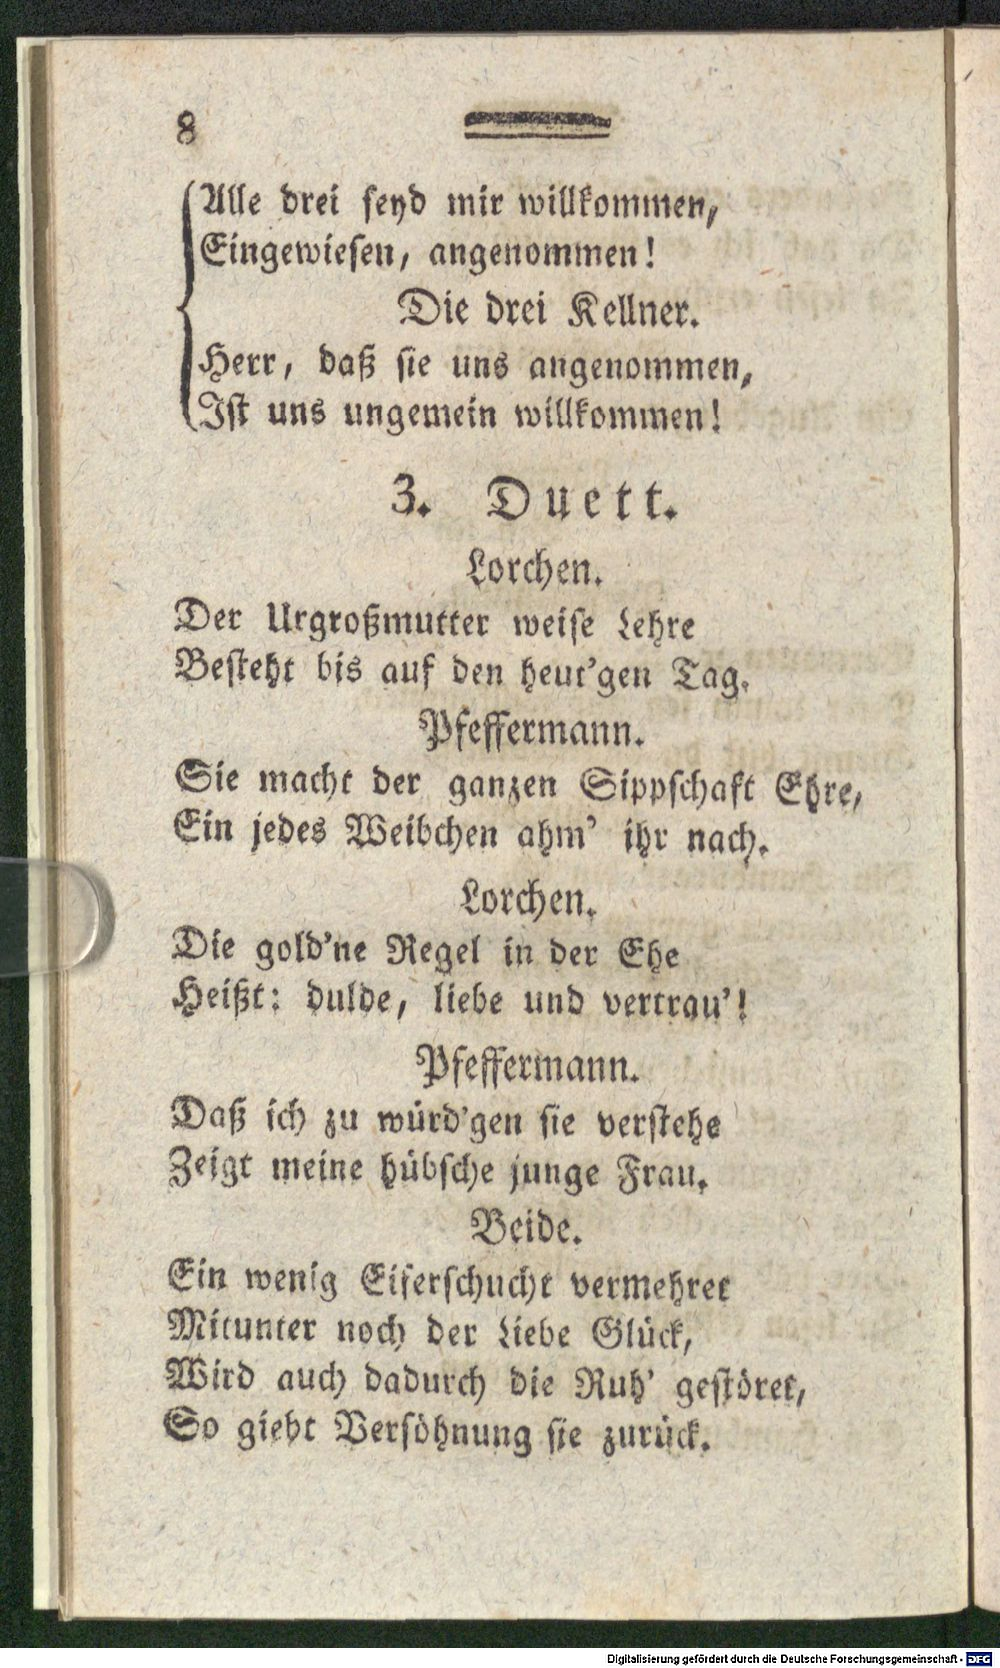 8
Alle drei seyd mir willkommen,
Eingewiesen, angenommen!
Die drei Kellner.
Herr, daß sie uns angenommen,
Ist uns ungemein willkommen!
3. Duett.
Lorchen.
Der Urgroßmutter weise Lehre
Besteht bis auf den heut'gen Tag.
Pfeffermann.
Sie macht der ganzen Sippschaft Ehre,
Ein jedes Weibchen ahm' ihr nach.
Lorchen.
Die gold'ne Regel in der Ehe
Heißt: dulde, liebe und vertrau'!
Pfeffermann.
Daß ich zu würd'gen sie verstehe
Zeigt meine hübsche junge Frau.
Beide.
Ein wenig Eiferschucht vermehret
Mitunter noch der Liebe Glück,
Wird auch dadurch die Ruh' gestöret,
So giebt Versöhnung sie zurück.
Digitalisierung gefördert durch die Deutsche Forschungsgemeinschaft - DFG